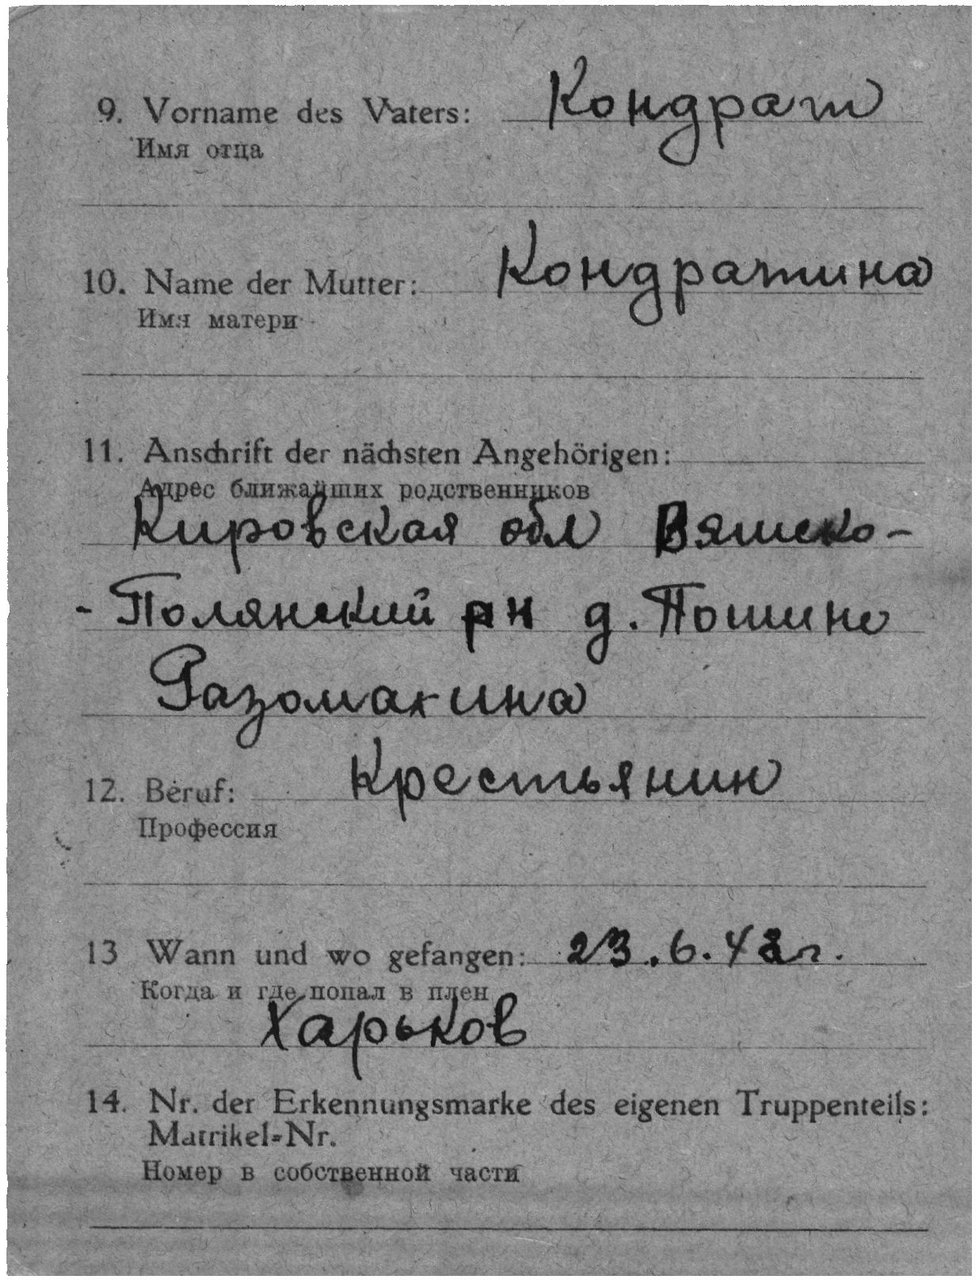 9. Vorname des Vaters: Кондрат
Имя отца
10. Name der Mutter: Кондратина
Имя матери
11. Anschrift der nächsten Angehörigen:
Адрес ближайших родственников
Кировская обл Вятско-
-Полянский рн д. Тошино
Разомакина
12. Beruf: Крестьянин
Профессия
13 Wann und wo gefangen: 23.6.42г.
Когда и где попал в плен
Харьков
14. Nr. der Erkennungsmarke des eigenen Truppenteils:
Matrikel-Nr.
Номер в собственной части